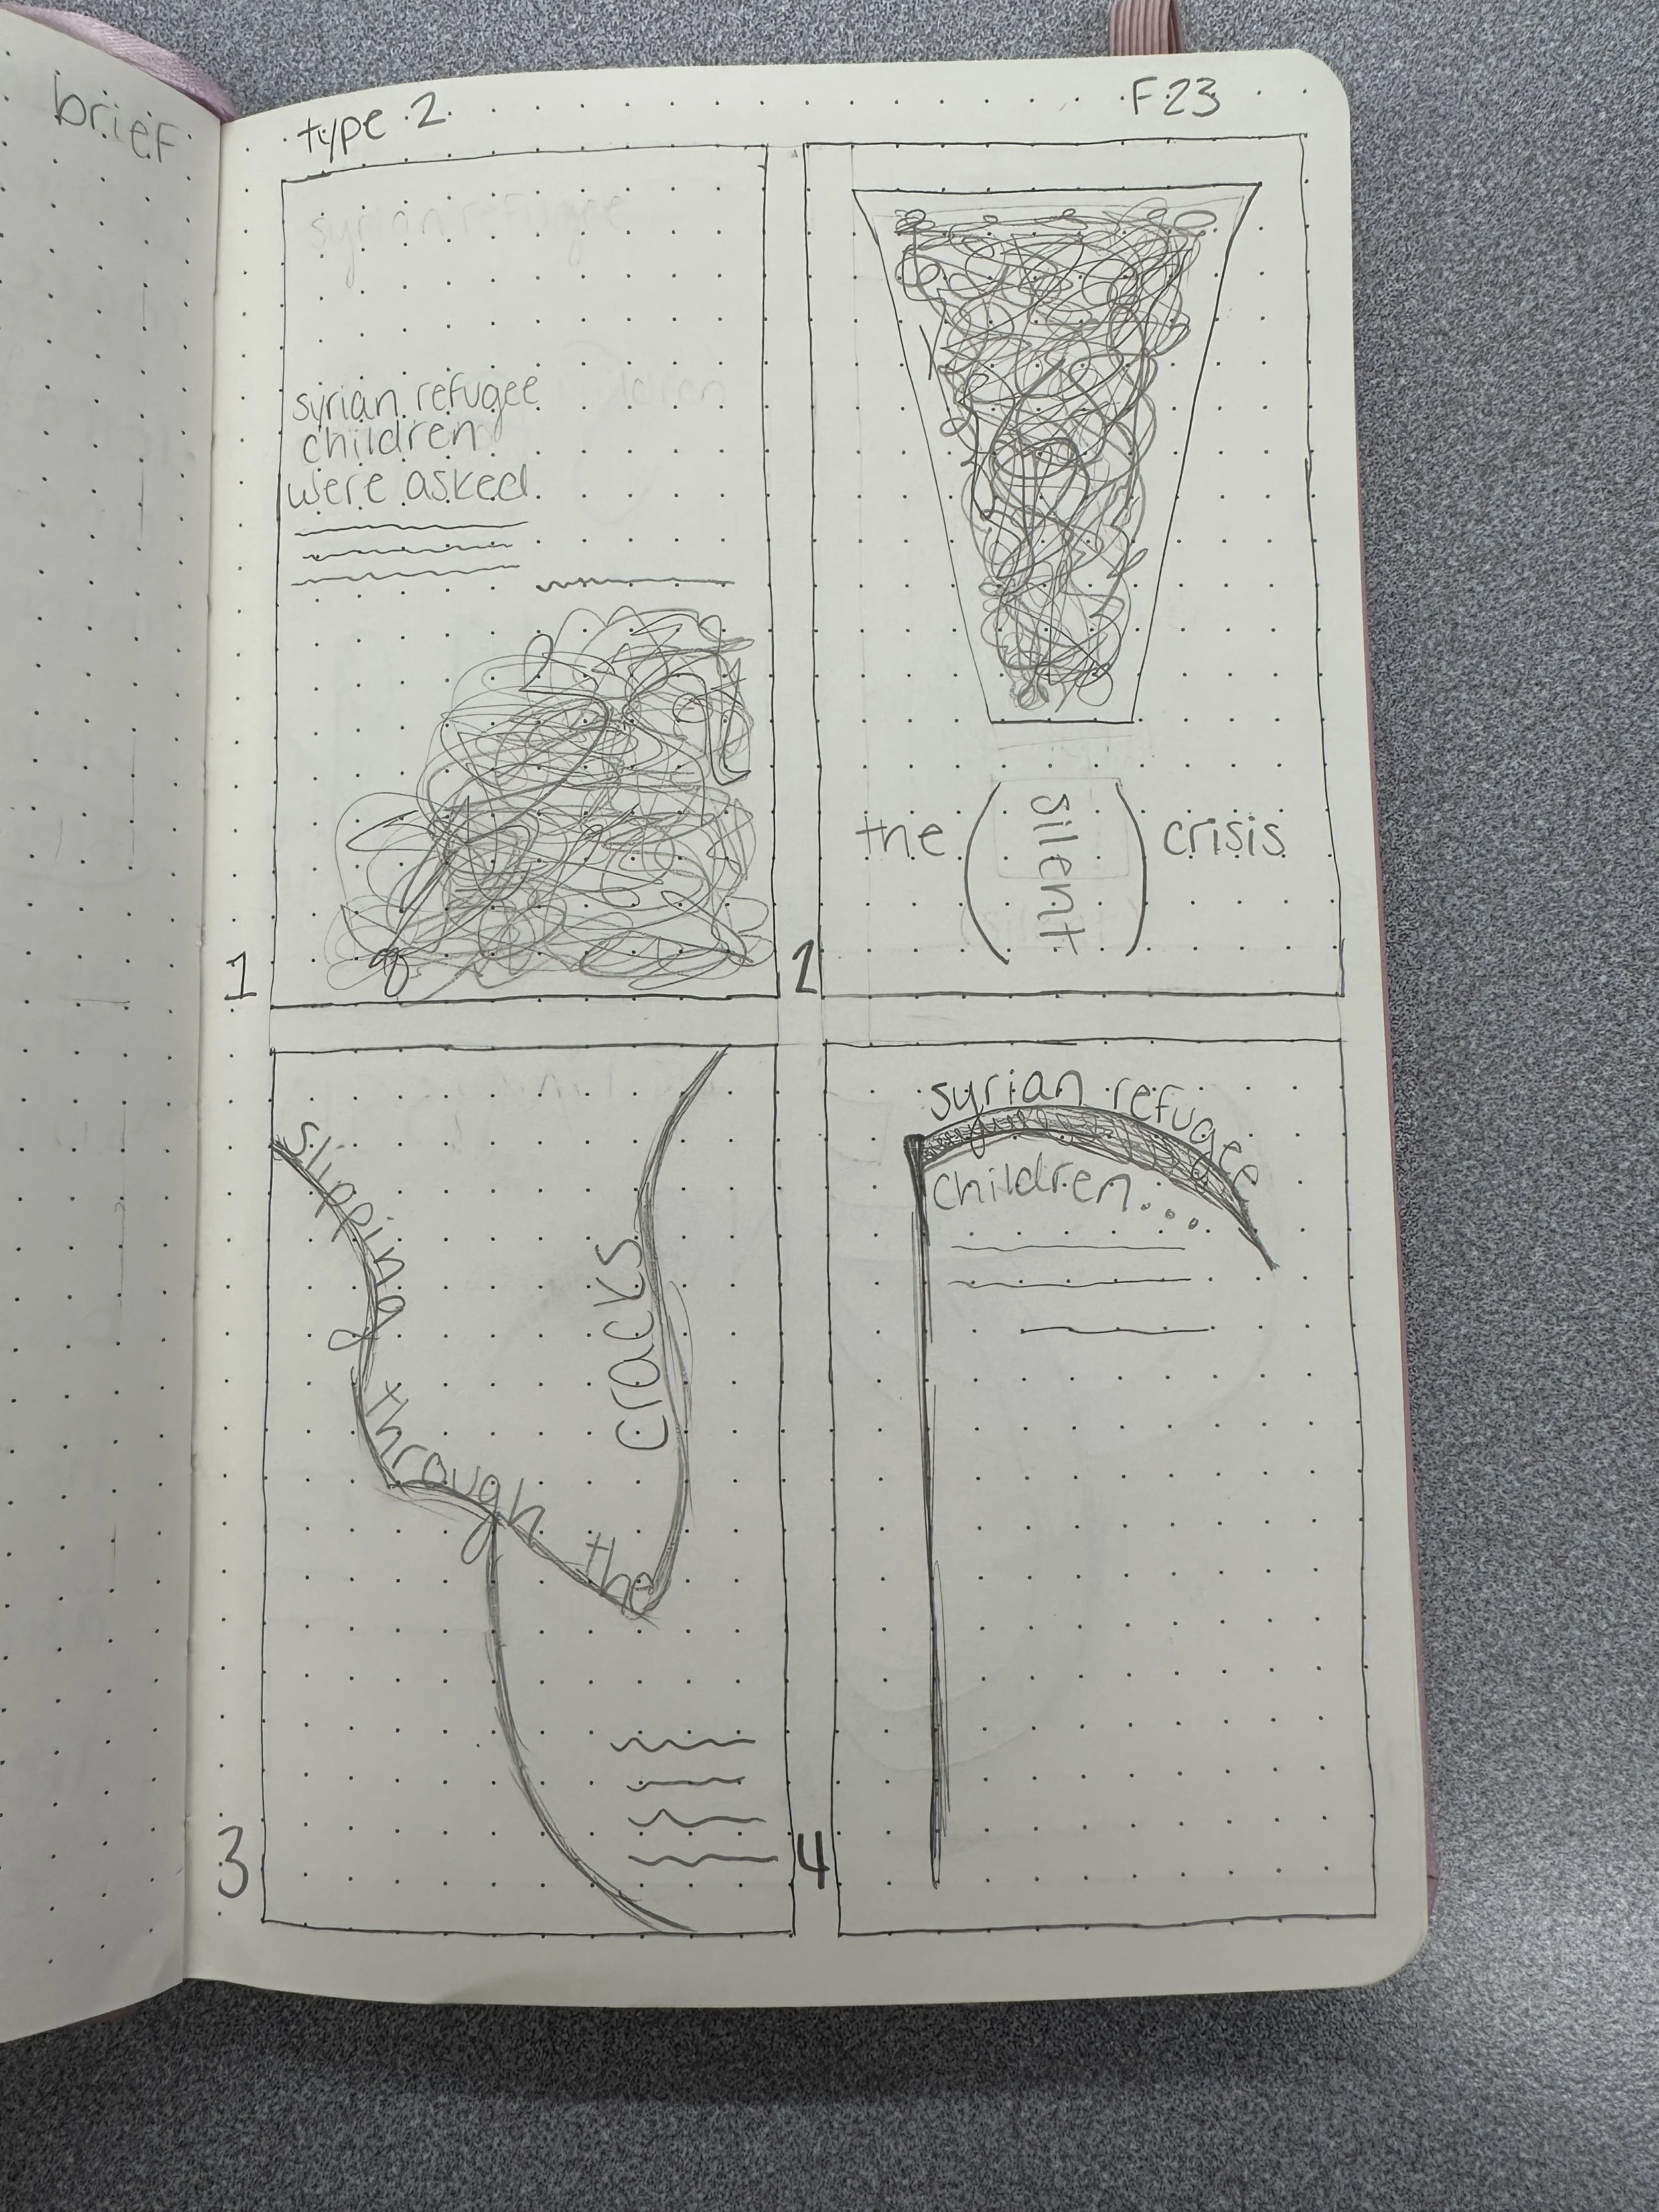 brief
type 2
F23
syrian refugee
syrian refugee
children
were asked
children
1
the (silent) crisis
2
slipping through the cracks
3
syrian refugee
children...
4